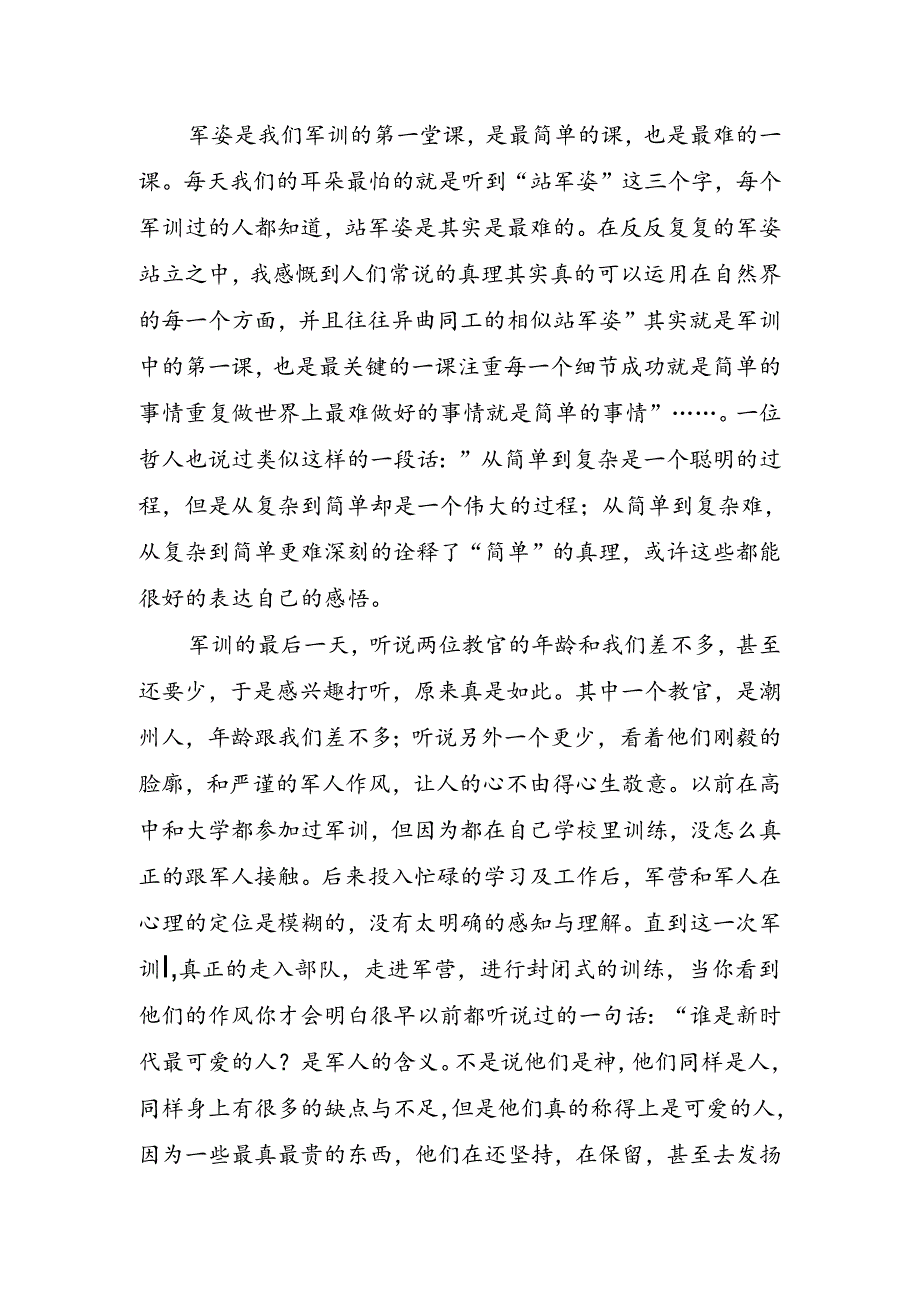 军姿是我们军训的第一堂课，是最简单的课，也是最难的一
课。每天我们的耳朵最怕的就是听到“站军姿”这三个字，每个
军训过的人都知道，站军姿是其实是最难的。在反反复复的军姿
站立之中，我感慨到人们常说的真理其实真的可以运用在自然界
的每一个方面，并且往往异曲同工的相似站军姿”其实就是军训
中的第一课，也是最关键的一课注重每一个细节成功就是简单的
事情重复做世界上最难做好的事情就是简单的事情”……。一位
哲人也说过类似这样的一段话：”从简单到复杂是一个聪明的过
程，但是从复杂到简单却是一个伟大的过程；从简单到复杂难，
从复杂到简单更难深刻的诠释了“简单”的真理，或许这些都能
很好的表达自己的感悟。
军训的最后一天，听说两位教官的年龄和我们差不多，甚至
还要少，于是感兴趣打听，原来真是如此。其中一个教官，是潮
州人，年龄跟我们差不多；听说另外一个更少，看着他们刚毅的
脸廓，和严谨的军人作风，让人的心不由得心生敬意。以前在高
中和大学都参加过军训，但因为都在自己学校里训练，没怎么真
正的跟军人接触。后来投入忙碌的学习及工作后，军营和军人在
心理的定位是模糊的，没有太明确的感知与理解。直到这一次军
训|,真正的走入部队，走进军营，进行封闭式的训练，当你看到
他们的作风你才会明白很早以前都听说过的一句话：“谁是新时
代最可爱的人？是军人的含义。不是说他们是神，他们同样是人，
同样身上有很多的缺点与不足，但是他们真的称得上是可爱的人，
因为一些最真最贵的东西，他们在还坚持，在保留，甚至去发扬